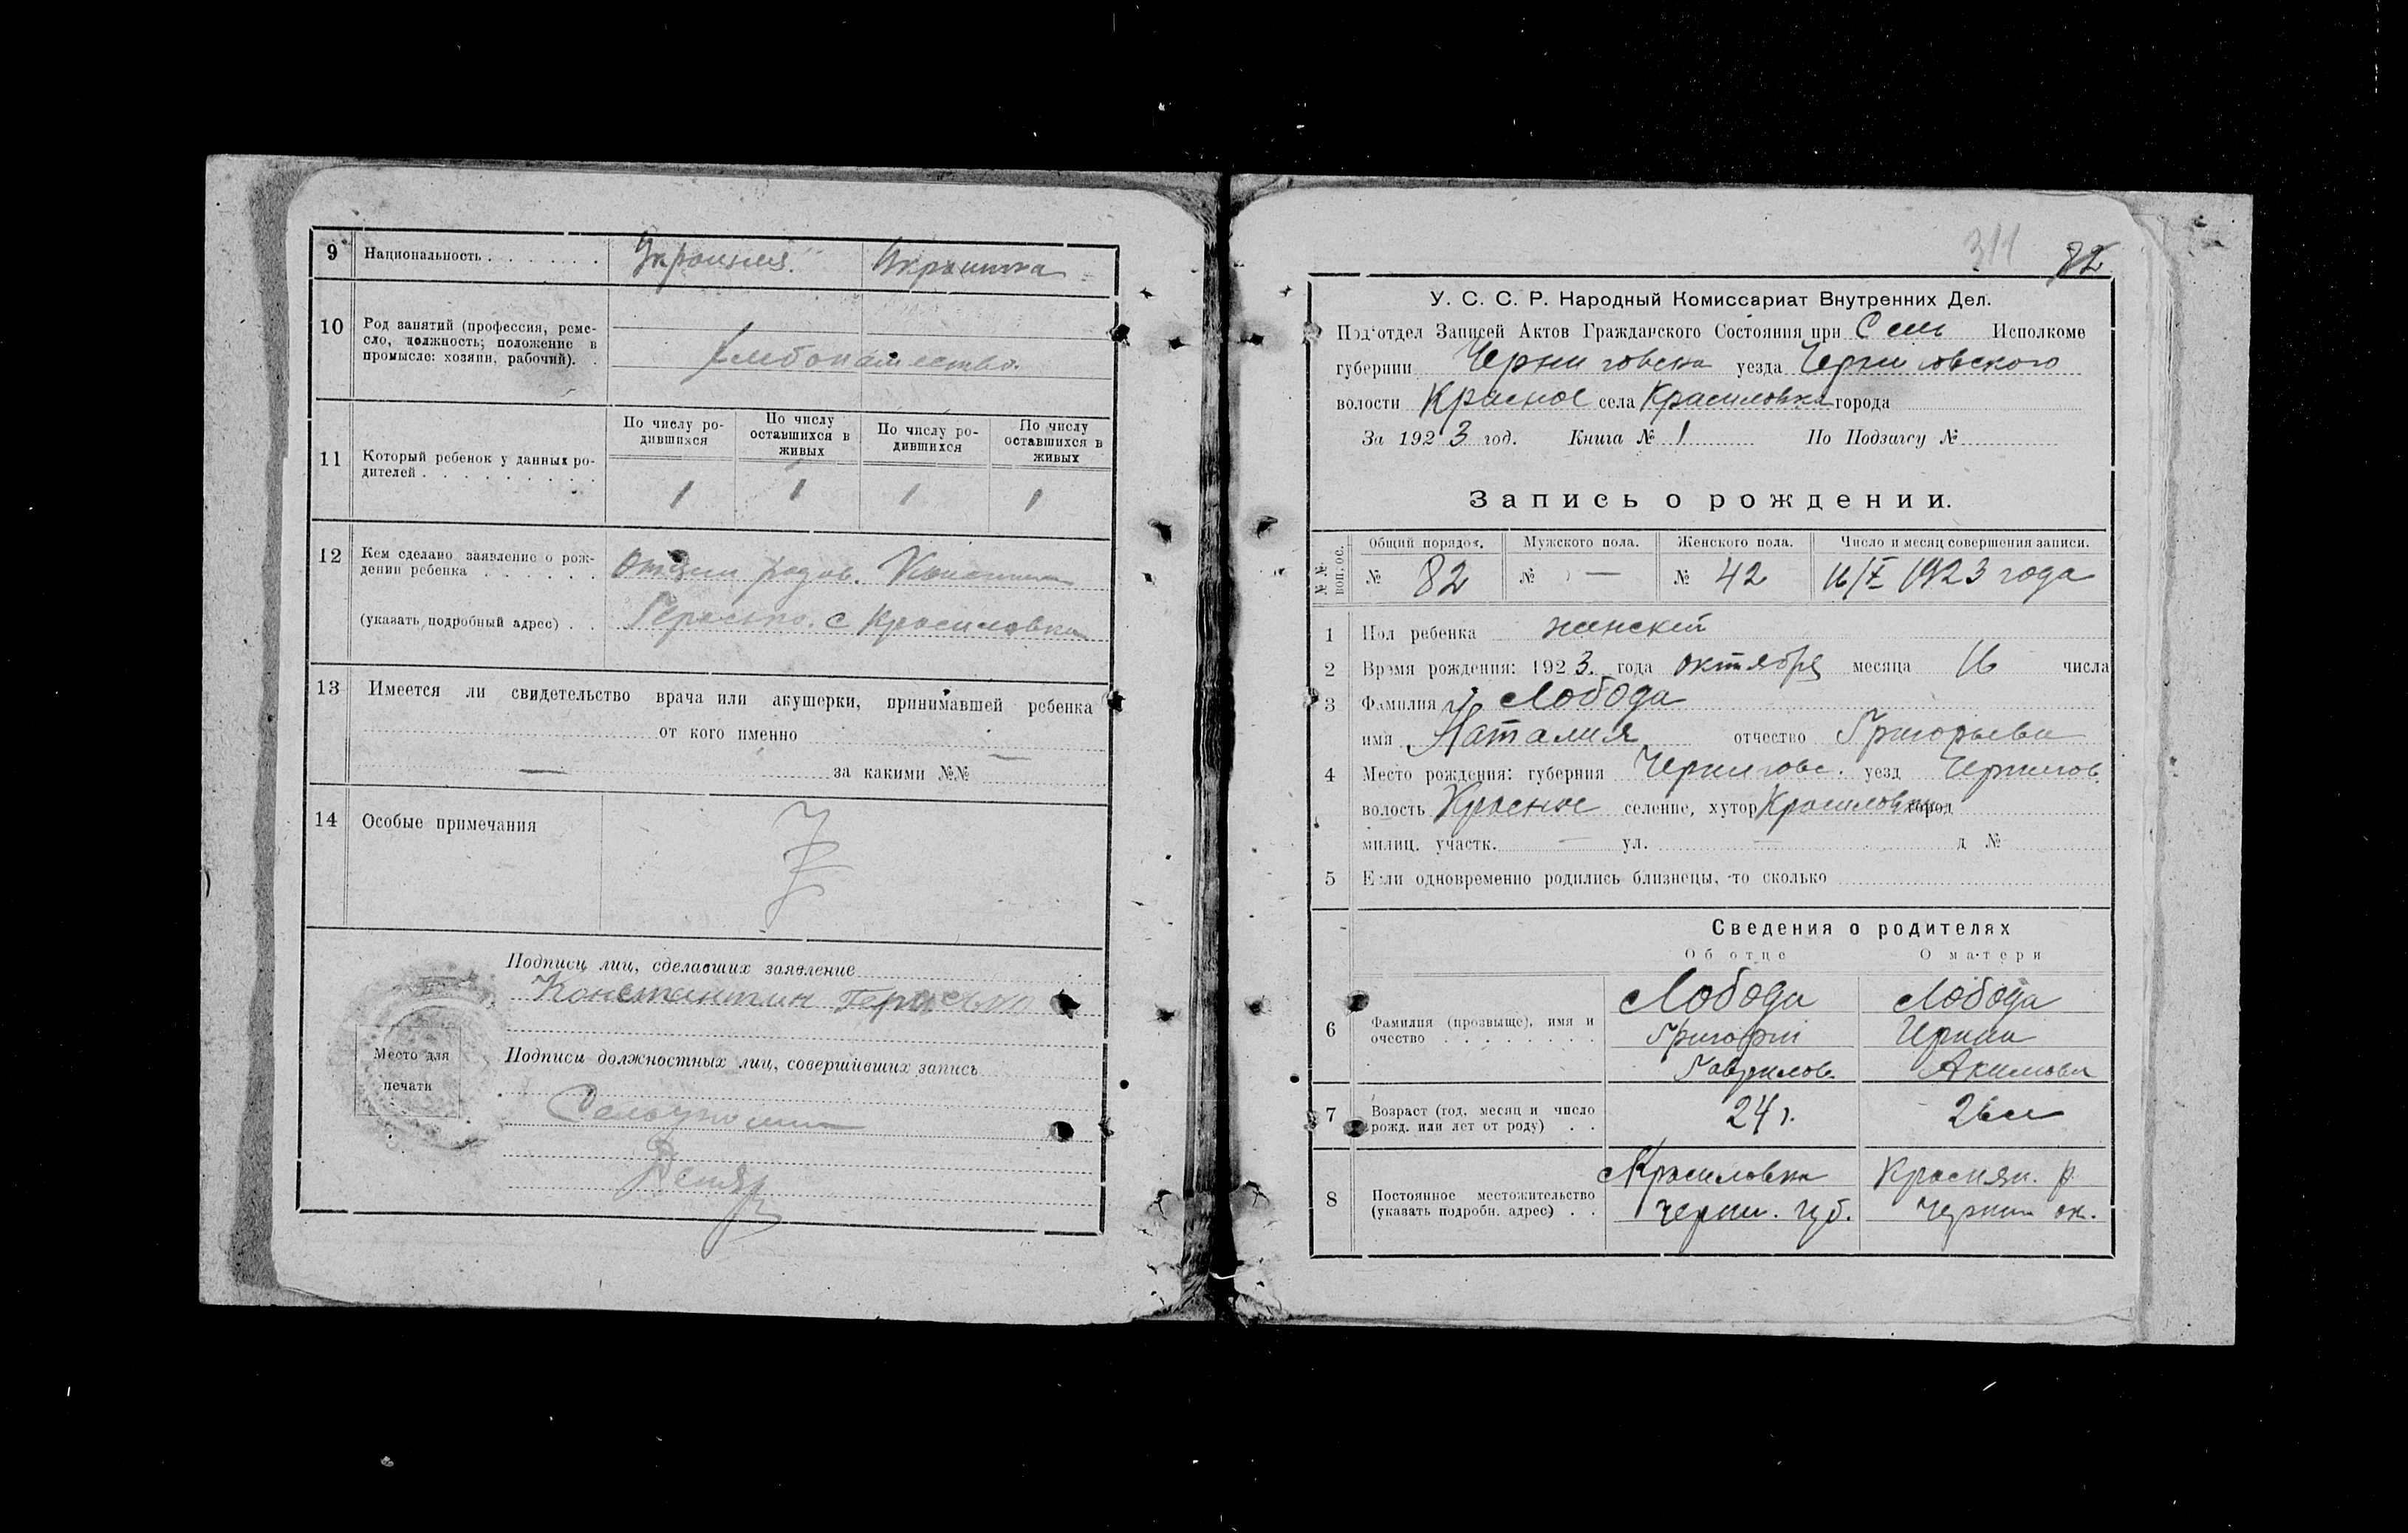 9 Национальность . . . . . .
10 Род занятий (профессия, реме-
сло, должность; положение в
промысле: хозяин, рабочий). .
Хлебопашество.
По числу ро-
дившихся
По числу
оставшихся в
живых
По числу ро-
дившихся
По числу
оставшихся в
живых
11 Который ребенок у данных ро-
дителей . . . . . . . . .
1 1 1 1
12 Кем сделано заявление о рож-
дении ребенка . . . . . .
(указать подробный адрес) . . с Красиловка
13 Имеется ли свидетельство врача или акушерки, принимавшей ребенка
от кого именно —
— за какими №№
14 Особые примечания
Подписи лиц, сделавших заявление
Константин
Место для
печати
Подписи должностных лиц, совершивших запись
311 82
У. С. С. Р. Народный Комиссариат Внутренних Дел.
Под'отдел Записей Актов Гражданского Состояния при Сель Исполкоме
губернии Черниговска уезда Черниговского
волости Красное села Красиловка города
За 1923 год. Книга № 1 По Подзагсу №
Запись о рождении.
№№ воп. ос.
Общий порядок. Мужского пола. Женского пола. Число и месяц совершения записи.
№ 82 № — № 42 16/X 1923 года
1 Пол ребенка женский
2 Время рождения: 1923. года октября месяца 16 числа
3 Фамилия Лобода
имя Наталия отчество Григорьева
4 Место рождения: губерния Черниговс. уезд Чернигов
волость Красное селение, хутор Красиловка город
милиц. участк. — ул. — д №
5 Если одновременно родились близнецы, то сколько
Сведения о родителях
Об отце О матери
6 Фамилия (прозвыще), имя и
очество . . . . . . . .
Лобода Лобода
Григорій
Гаврилов. Акимовы
7 Возраст (год, месяц и число
рожд. или лет от роду) . .
24 г. 26
8 Постоянное местожительство
(указать подробн. адрес) . .
Красиловка Краснян. р.
Черни. губ. ок.